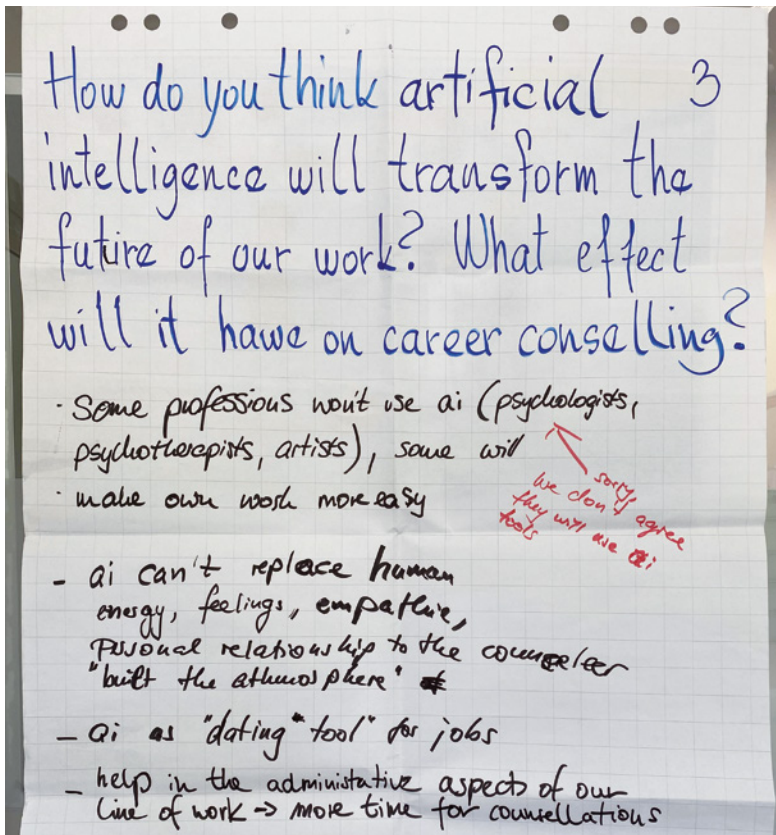 How do you think artificial 3
intelligence will transform the
future of our work? What effect
will it hawe on career conselling?
· Some professions won't use ai (psychologists,
psychotherapists, artists), some will
sorry,
we don't agree
they will use ai
tools
· make own work more easy
- ai can't replace human
energy, feelings, empathie,
Personal relationship to the counseleer
"built the athmosphere"
- ai as "dating" tool" for jobs
- help in the administative aspects of our
line of work → more time for counsellations